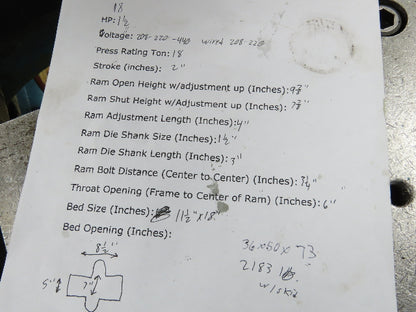 18
HP: 1½
Voltage: 208-220-440 wired 208-220
Press Rating Ton: 18
Stroke (inches): 2"
Ram Open Height w/adjustment up (Inches): 9¾"
Ram Shut Height w/Adjustment up (Inches): 7¾"
Ram Adjustment Length (Inches): 4"
Ram Die Shank Size (Inches): 1½"
Ram Die Shank Length (Inches): 3"
Ram Bolt Distance (Center to Center) (Inches):
Throat Opening (Frame to Center of Ram) (Inches): 6"
Bed Size (Inches): 11½" x 18"
Bed Opening (Inches):
8½"
5"
7"
36x50x73
2183 lb.
w/skid